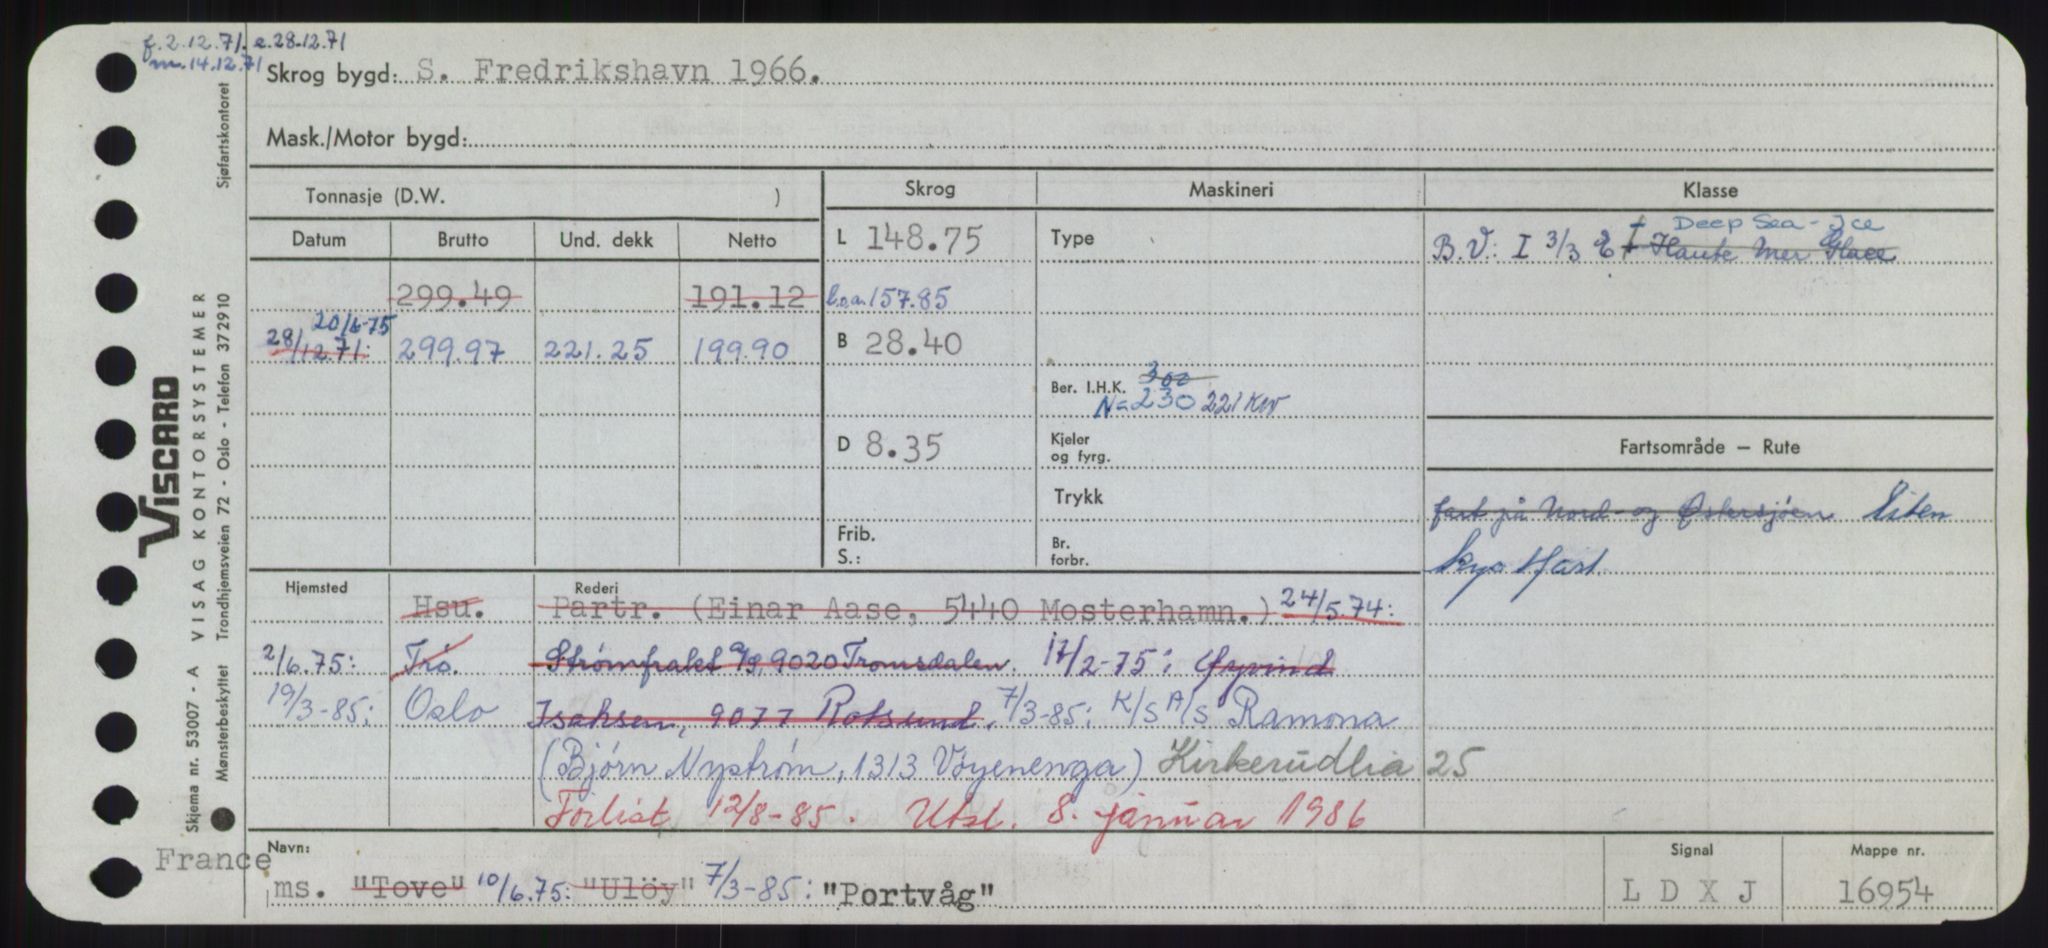 f. 2.12.71. e. 28.12.71
m. 14.12.71
Skrog bygd: S. Fredrikshavn 1966.
Mask./Motor bygd:
Tonnasje (D.W. )
Skrog
Maskineri
Klasse
Datum
Brutto
Und. dekk
Netto
L 148.75
Type
Deep Sea - Ice
B.V.: I 3/3 E Haute Mer Glace
299.49
191.12
l.o.a. 157.85
20/6-75
28/12.71:
299.97
221.25
199.90
B 28.40
Ber. I.H.K. 300
N=230 221 KW
D 8.35
Kjeler
og fyrg.
Fartsområde – Rute
Trykk
fart på Nord- og Østersjøen Liten
kystfart
Frib.
S.:
Br.
forbr.
Hjemsted
Rederi
Hsu.
Partr. (Einar Aase, 5440 Mosterhamn.) 24/5.74:
2/6.75: Trs. Strømfrakt A/S, 9020 Tromsdalen. 17/2-75: Øyvind
19/3-85: Oslo Isaksen, 9077 Rotsund. 7/3-85: K/S A/S Ramona
(Bjørn Nystrøm, 1313 Vøyenenga) Kirkerudlia 25
Forlist 12/8-85. Utsl. 8. januar 1986
France
Navn:
ms. "Tove" 10/6.75: "Ulöy" 7/3-85: "Portvåg"
Signal
L D X J
Mappe nr.
16954
Sjøfartskontoret
VISCARD
VISAG KONTORSYSTEMER
Trondhjemsveien 72 - Oslo - Telefon 372910
Skjema nr. 53007 - A
Mønsterbeskyttet